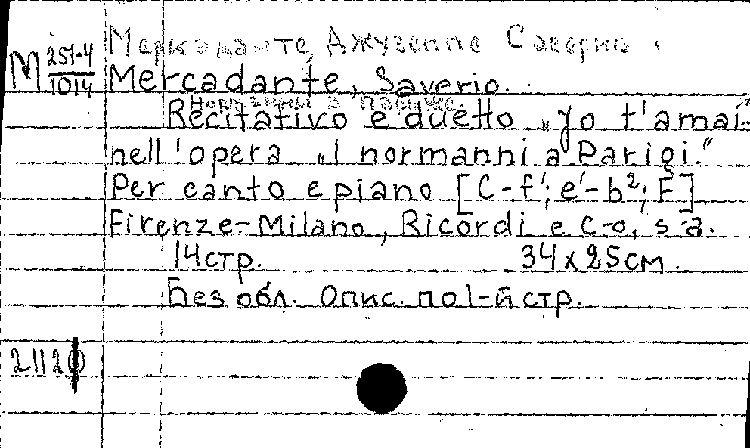 Меркаданте, Джузеппе Саверио.
М 251-4
1014
Mercadante, Saverio.
Норманны в Париже.
Recitativo e duetto „Jo t'amai"
nell'opera „I normanni a Parigi."
Per canto e piano [C-f'; e'-b²; F]
Firenze-Milano, Ricordi e C-o, s.a.
14 стр. 34 x 25 см.
Без обл. Опис. по 1-й стр.
2112